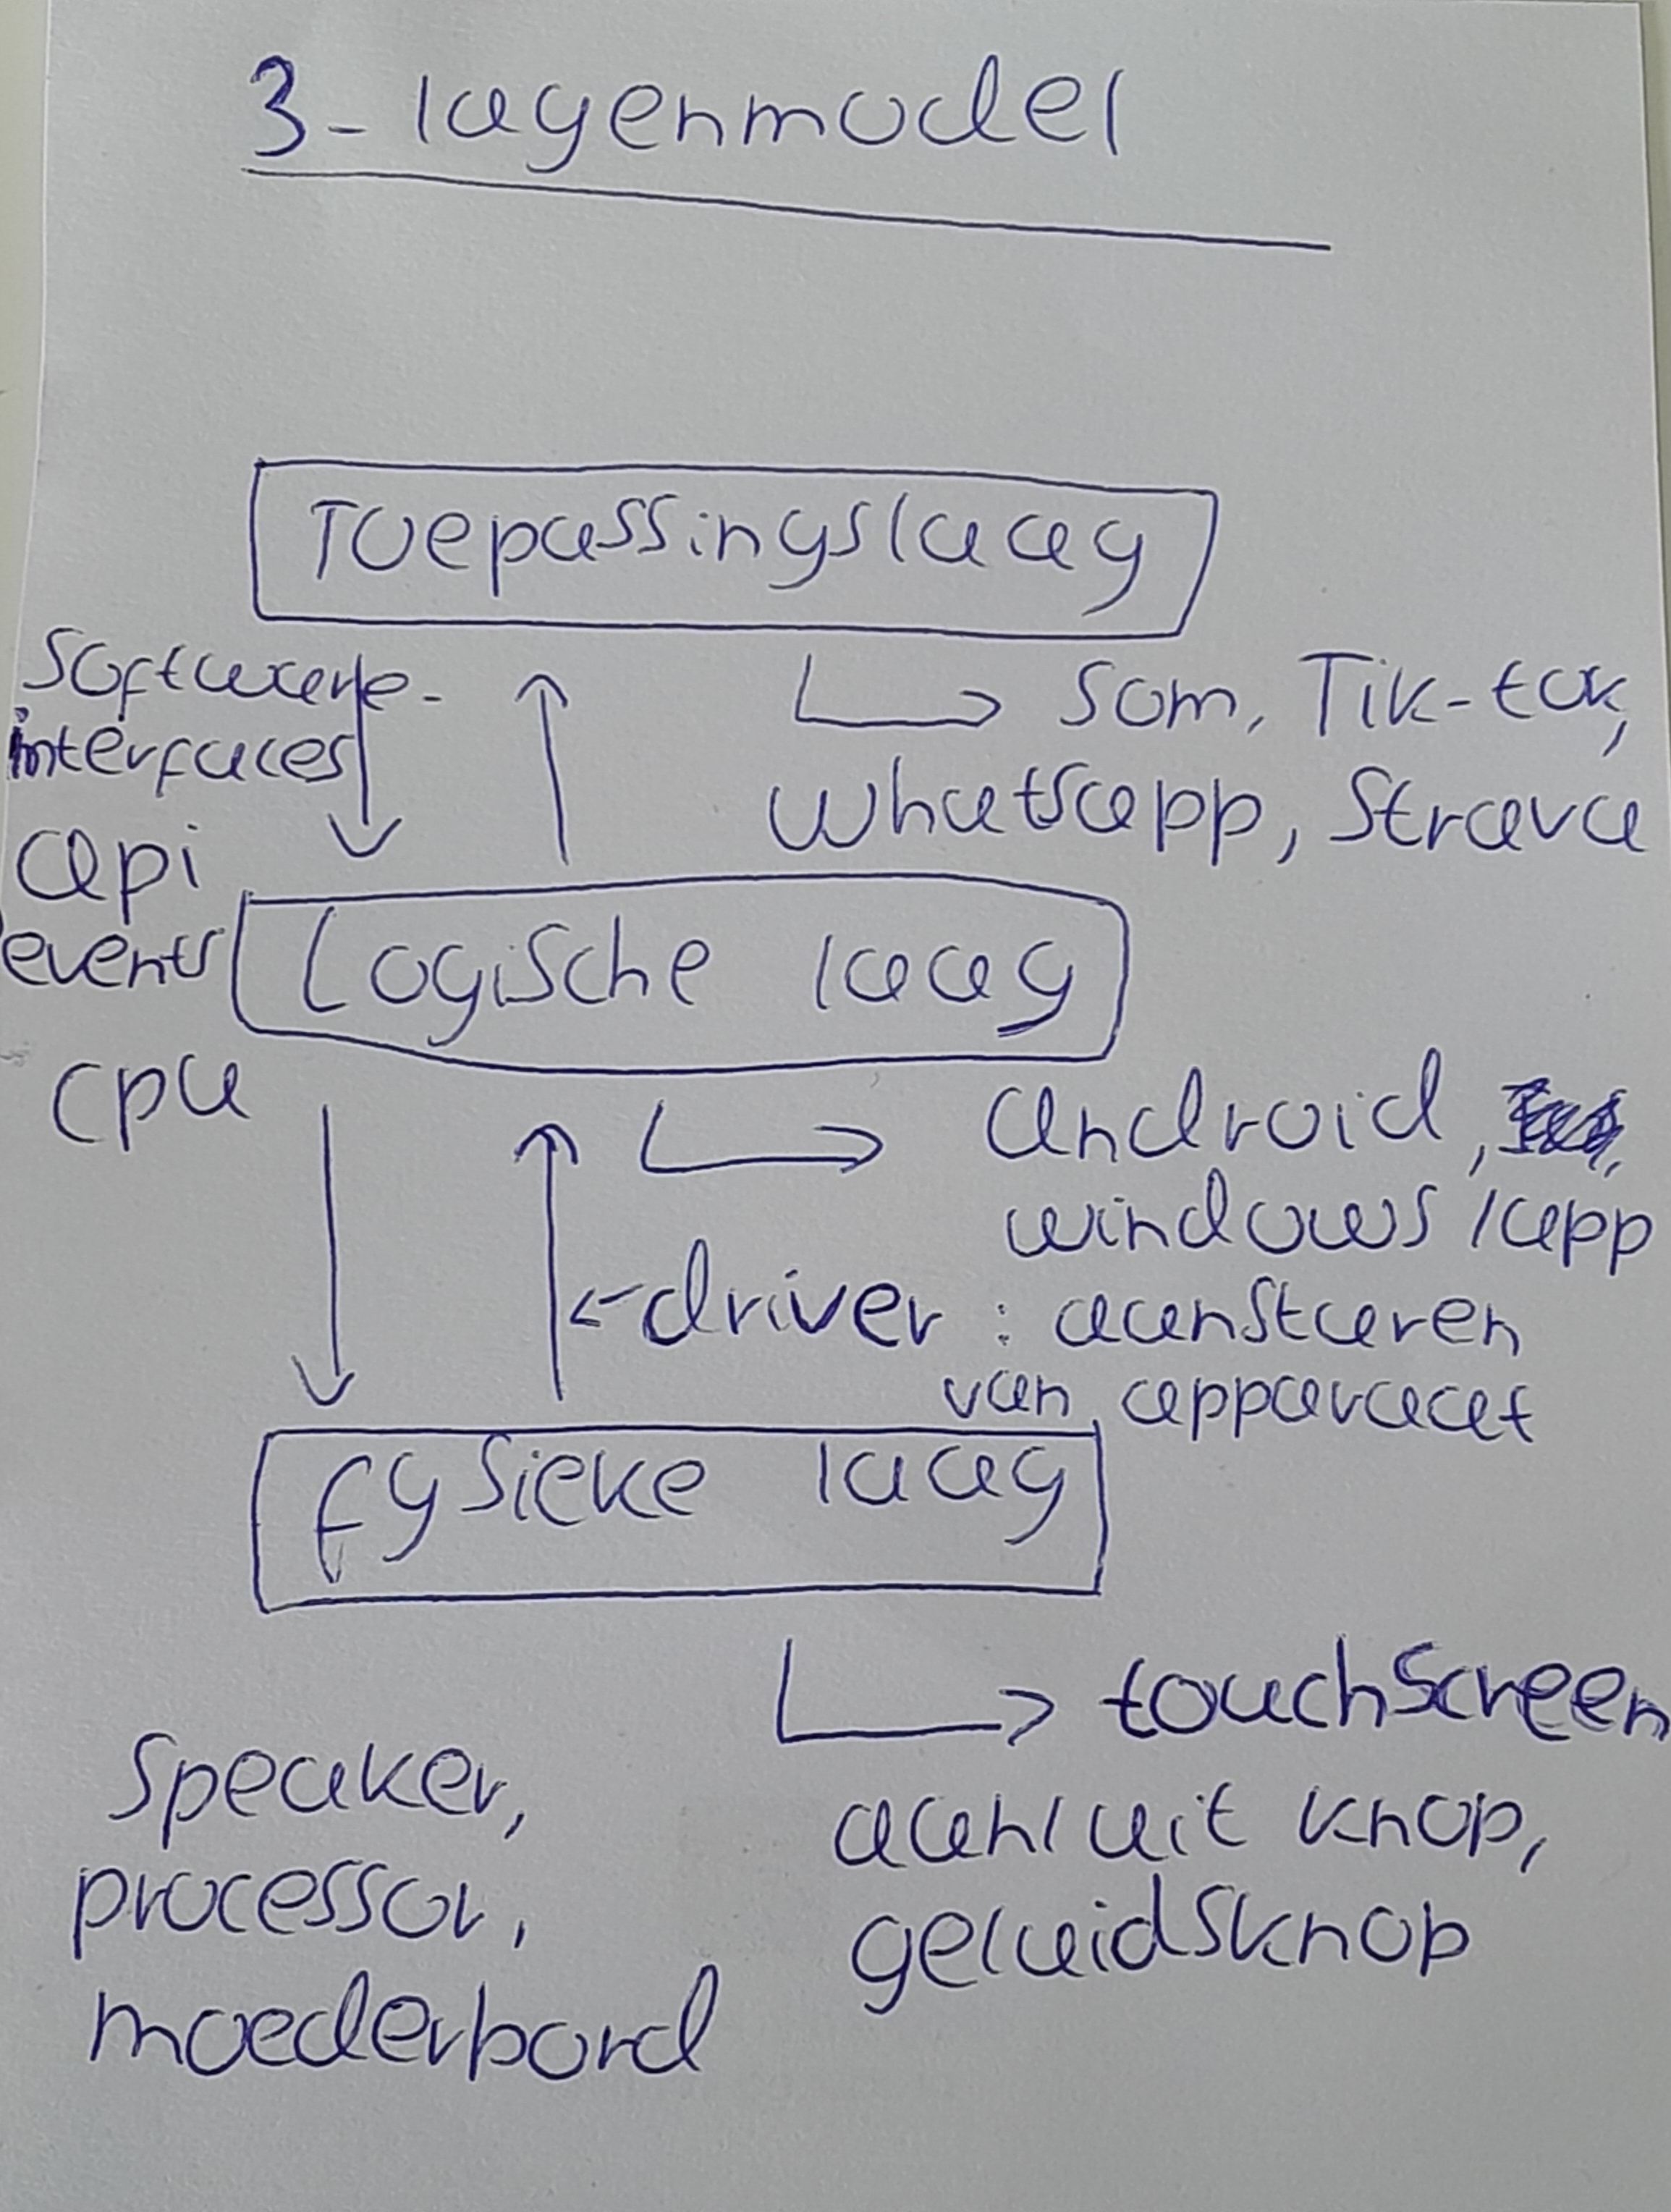 3-lagenmodel
Toepassingslaag
Software-
interfaces
api
events
Som, Tik-tok,
Whatsapp, Strava
Logische laag
cpu
android,
windows /app
driver : aansturen
van apparaat
fysieke laag
touchscreen
aan/uit knop,
geluidsknop
Speaker,
processor,
moederbord